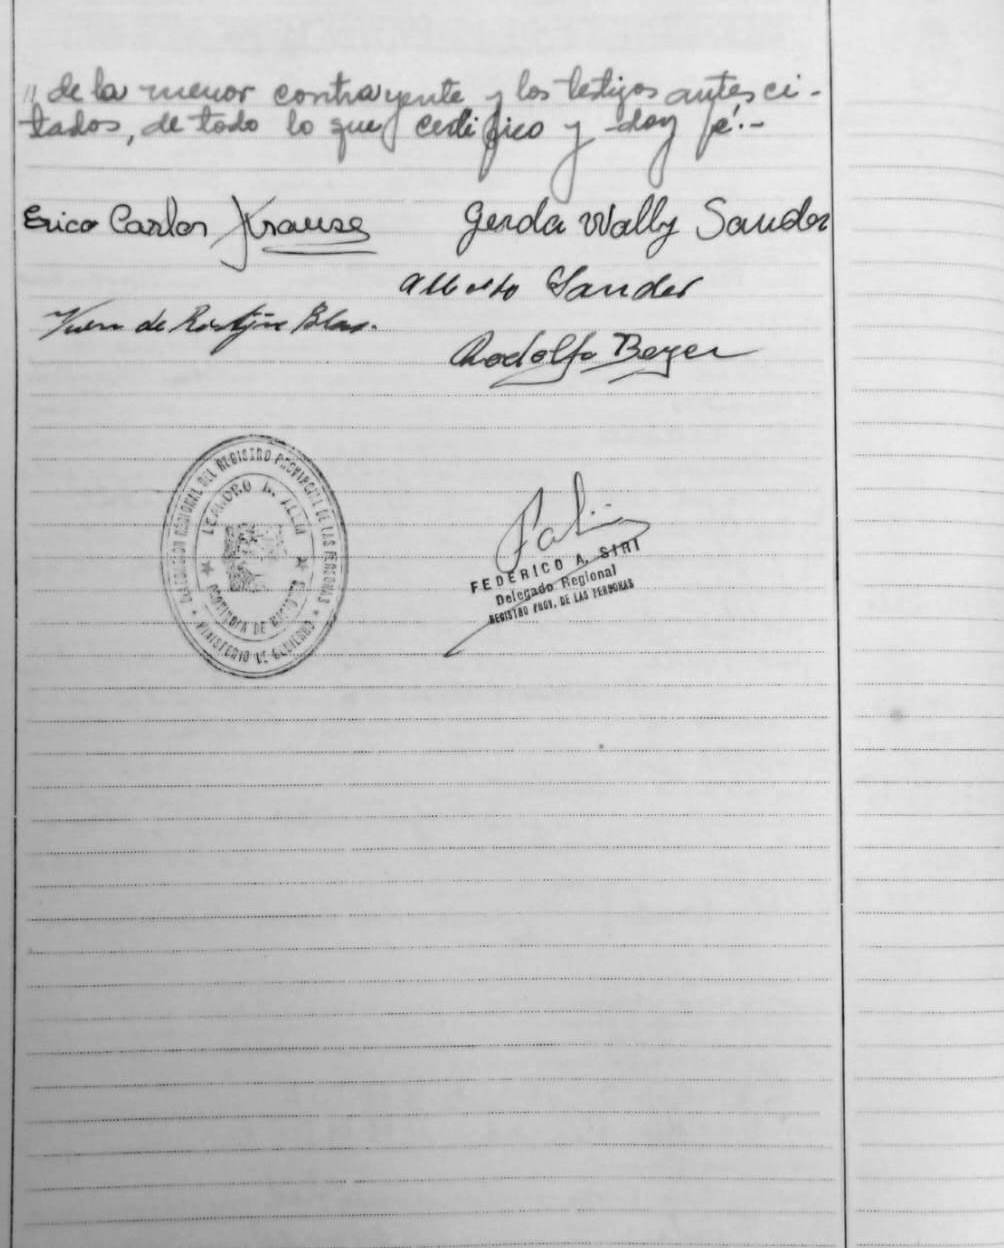 // de la menor contrayente y los testigos antes ci-
tados, de todo lo que certifico y doy fé.-
Erico Carlos Krause
Gerda Wally Sander
Alberto Sander
de Blas.
Rodolfo Beyer
DELEGACION REGIONAL DEL REGISTRO PROVINCIAL DE LAS PERSONAS
LEANDRO N. ALEM
PROVINCIA DE MISIONES
MINISTERIO DE GOBIERNO
FEDERICO A. SIRI
Delegado Regional
REGISTRO PROV. DE LAS PERSONAS